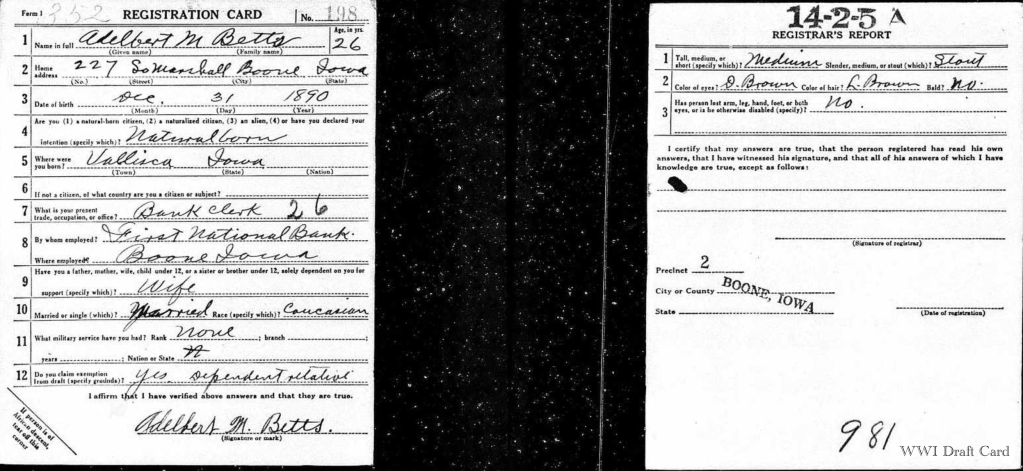 Form 1 1352 REGISTRATION CARD No. 198
1 Name in full Adelbert M Betts Age, in yrs. 26
(Given name) (Family name)
2 Home address 227 So Marshall Boone Iowa
(No.) (Street) (City) (State)
3 Date of birth Dec. 31 1890
(Month) (Day) (Year)
4 Are you (1) a natural-born citizen, (2) a naturalized citizen, (3) an alien, (4) or have you declared your
intention (specify which)? Natural born
5 Where were you born? Vallisca Iowa
(Town) (State) (Nation)
6 If not a citizen, of what country are you a citizen or subject?
7 What is your present trade, occupation, or office? Bank clerk 26
8 By whom employed? First National Bank.
Where employed? Boone Iowa
9 Have you a father, mother, wife, child under 12, or a sister or brother under 12, solely dependent on you for
support (specify which)? Wife
10 Married or single (which)? Married Race (specify which)? Caucasian
11 What military service have you had? Rank none ; branch ;
years ; Nation or State
12 Do you claim exemption from draft (specify grounds)? Yes. Dependent relative
I affirm that I have verified above answers and that they are true.
Adelbert M. Betts.
(Signature or mark)
If person is of
African descent,
tear off this
corner
14-2-5 A
REGISTRAR'S REPORT
1 Tall, medium, or short (specify which)? Medium Slender, medium, or stout (which)? Stout
2 Color of eyes? D. Brown Color of hair? L. Brown Bald? No.
3 Has person lost arm, leg, hand, foot, or both
eyes, or is he otherwise disabled (specify)? No.
I certify that my answers are true, that the person registered has read his own
answers, that I have witnessed his signature, and that all of his answers of which I have
knowledge are true, except as follows:
(Signature of registrar)
Precinct 2
City or County BOONE, IOWA
State
(Date of registration)
981
WWI Draft Card